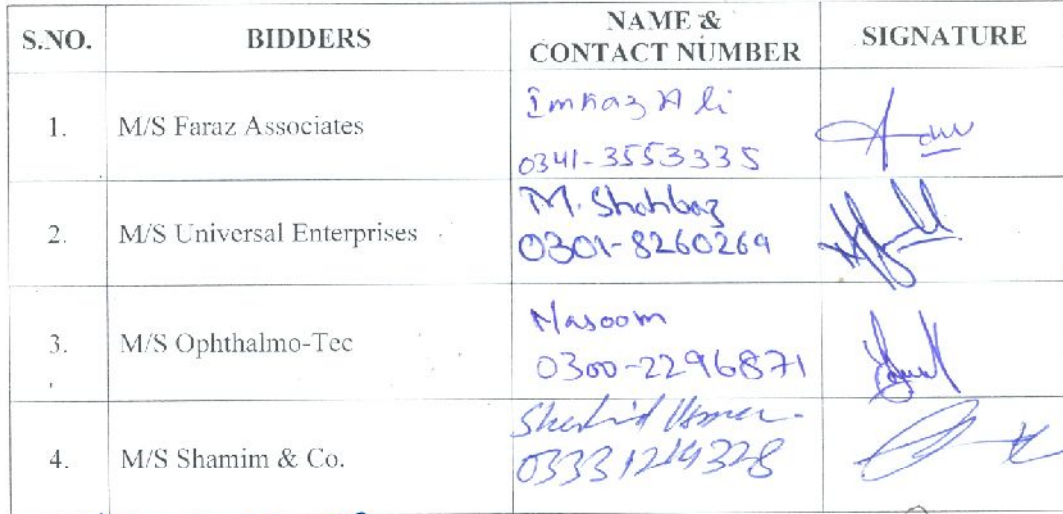 S.NO. BIDDERS NAME & CONTACT NUMBER SIGNATURE
1. M/S Faraz Associates
Imtiaz Ali
0341-3553335
2. M/S Universal Enterprises
M. Shahbaz
0301-8260269
3. M/S Ophthalmo-Tec
Masoom
0300-2296871
4. M/S Shamim & Co.
Shahid